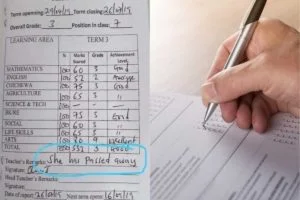 Term opening 29/04/19 Term closing 26/07/19
Overall Grade: 3 Position in class: 7
LEARNING AREA TERM 3
% Marks Scored Grade Achievement Level
MATHEMATICS 100 60 3 Good
ENGLISH 100 52 2 Average
CHICHEWA 100 75 3 Good
AGRICULTURE 100 65 3 Good
SCIENCE & TECH - - -
BK/RE 100 75 3 Good
SOCIAL 100 60 3 Good
LIFE SKILLS 100 65 3
ARTS 100 80 Excellent
TOTAL 532 3 Good
Teacher's Remarks: She has passed away
Signature:
Head Teacher's Remarks:
Signature:
Date of report: 26/07/19 Next term opens 16/09/19